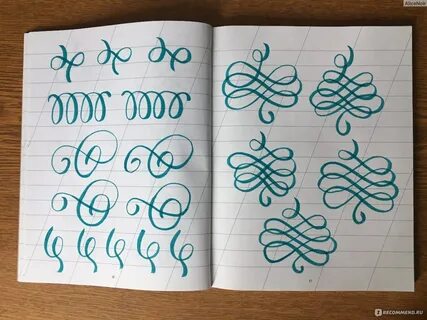 AliceNoir
RECOMMEND.RU